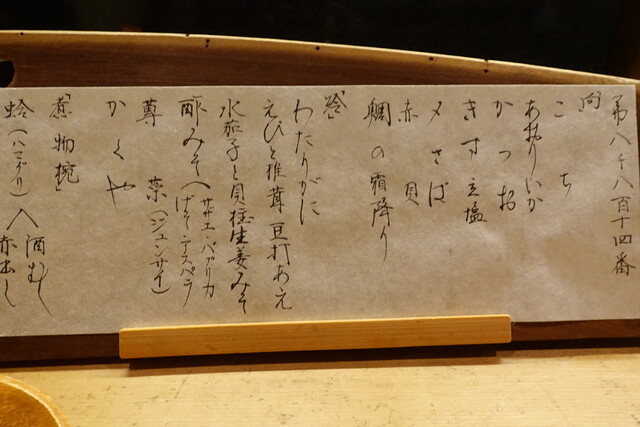 第八千八百十四番
「向」
こち
あおりいか
かつお
きす立塩
〆さば
赤貝
鯛の霜降り
「冷」
わたりがに
えびと椎茸豆打あえ
水茄子と貝柱生姜みそ
酢みそ(サザエ・パプリカ
げそ・アスパラ
蓴菜(ジュンサイ)
かくや
「煮物椀」
蛤(ハマグリ)
酒むし
赤出し